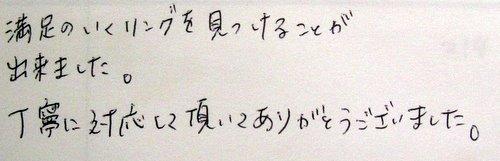 満足のいくリングを見つけることが
出来ました。
丁寧に対応して頂いてありがとうございました。